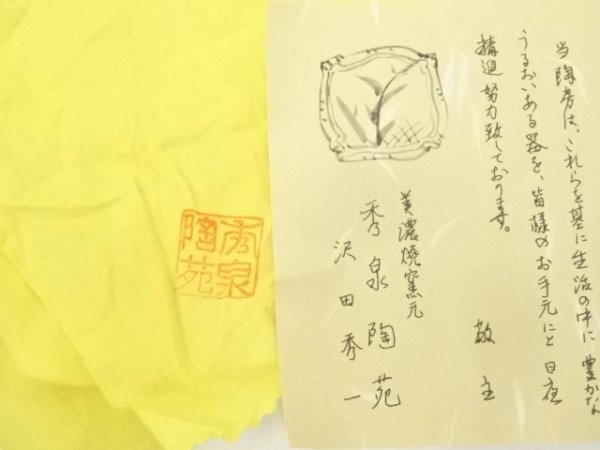 当陶房は、これらを基に生活の中に豊かな
うるおいある器を、皆様のお手元にと日夜
精進努力致しております。
敬主
美濃焼窯元
秀泉陶苑
沢田秀一
秀泉
陶苑